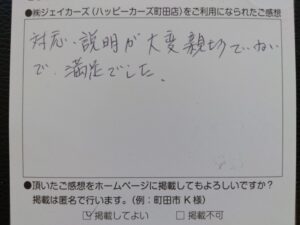 ●㈱ジェイカーズ(ハッピーカーズ町田店)をご利用になられたご感想
対応、説明が大変親切でていねい
で、満足でした。
●頂いたご感想をホームページに掲載してもよろしいですか?
掲載は匿名で行います。(例:町田市 K 様)
☑掲載してよい □掲載不可